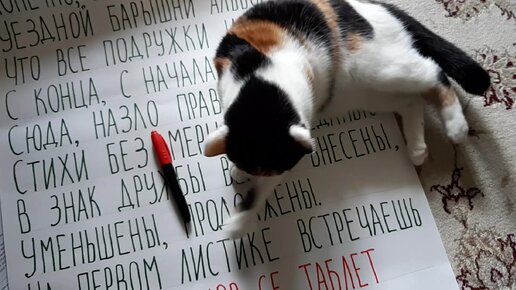 УЕЗДНОЙ БАРЫШНИ
ЧТО ВСЕ ПОДРУЖКИ
С КОНЦА, С НАЧАЛА
СЮДА, НАЗЛО
СТИХИ БЕЗ
В ЗНАК ДРУЖБЫ ВНЕСЕНЫ,
УМЕНЬШЕНЫ,
НА ПЕРВОМ ЛИСТИКЕ ВСТРЕЧАЕШЬ
СЕ ТАБЛЕТ